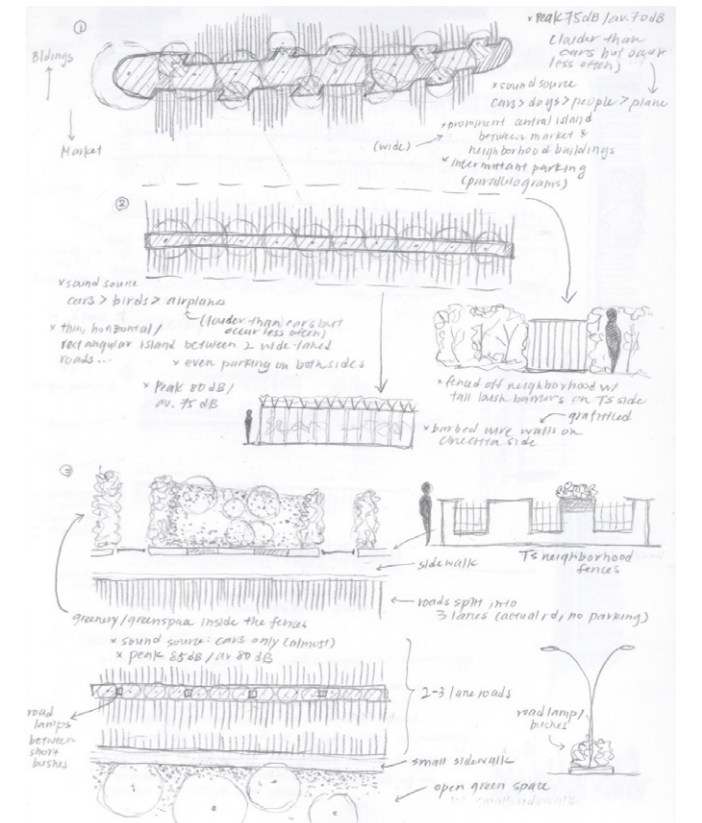 ①
Bldings
Market
* Peak 75dB/av. 70dB
(louder than
cars but occur
less often)
* sound source
cars > dogs > people > plane
* prominent central island
between market &
neighborhood buildings
(wide)
* intermittant parking
(parallelograms)
②
* sound source
cars > birds > airplane
(louder than cars but
occur less often)
* thin, horizontal/
rectangular island between 2 wide-laned
roads...
* even parking on both sides
* Peak 80 dB/
av. 75 dB
* fenced off neighborhood w/
tall lush barriers on TS side
grafittied
* barbed wire walls on
side
③
TS neighborhood
fences
sidewalk
roads split into
3 lanes (actual rd, no parking)
greenery/greenspace inside the fences
* sound source: cars only (almost)
* peak 85dB/av 80dB
2-3 lane roads
road
lamps
between
short
bushes
road lamp/
bushes
small sidewalk
open green space